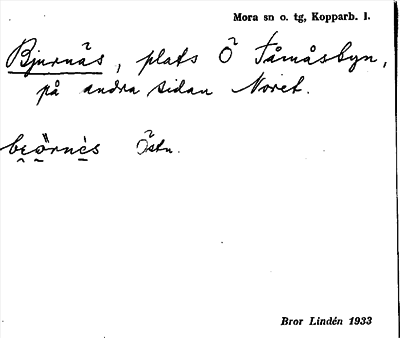 Mora sn o. tg, Kopparb. l.
Bjurnäs, plats Ö Tåmåsbyn,
på andra sidan Noret.
beörnès Östn.
Bror Lindén 1933